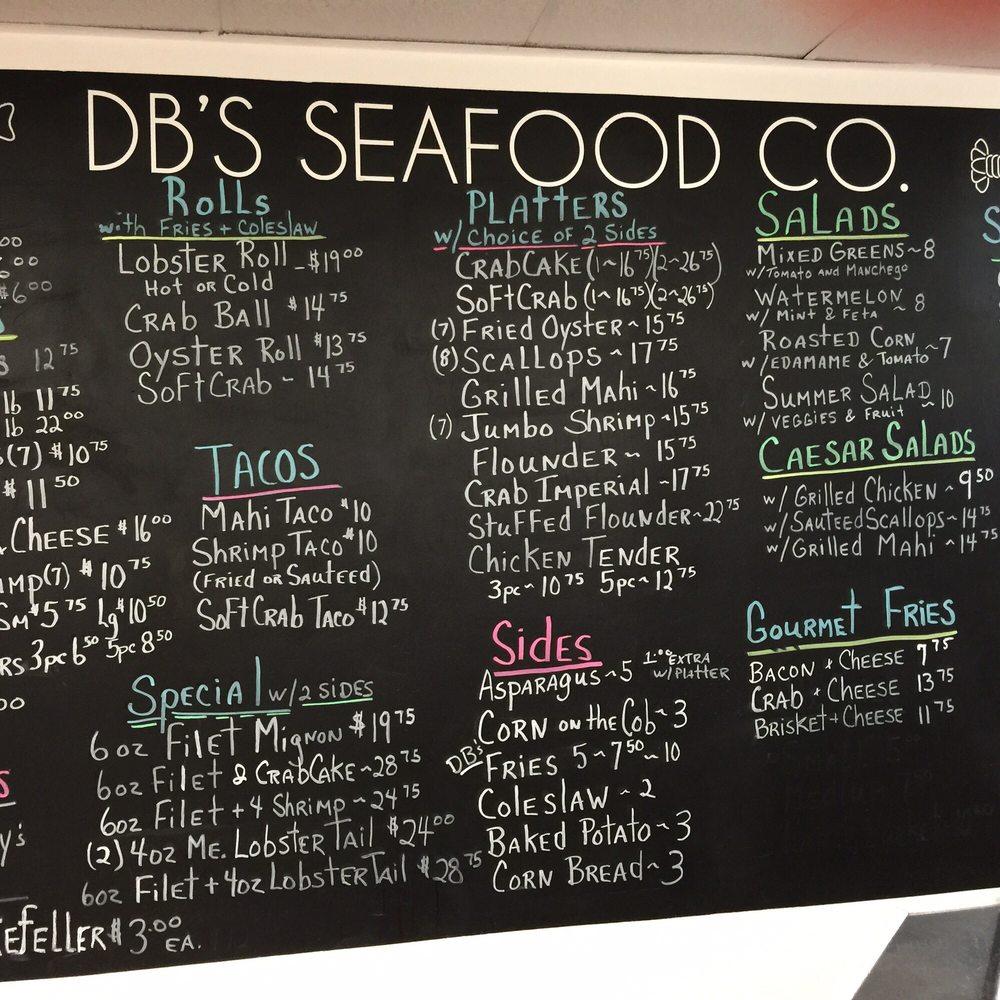 DB'S SEAFOOD CO.
Rolls
with FRIES + COLESLAW
LOBSTER ROLL - $19.00
HOT OR COLD
CRAB BALL $14.75
OYSTER ROLL $13.75
SOFTCRAB - 14.75
TACOS
MAHI TACO $10
SHRIMP TACO $10
(FRIED OR SAUTEED)
SOFTCRAB TACO $12.75
Special w/2 SIDES
6 oz FILET MIGNON $19.75
6oz FILET & CRABCAKE ~ 28.75
6oz FILET + 4 SHRIMP ~ 24.75
(2) 4oz ME. LOBSTER TAIL $24.00
6oz FILET + 4oz LOBSTER TAIL $28.75
PLATTERS
w/ CHOICE OF 2 SIDES
CRABCAKE (1~16.75)(2~26.75)
SOFTCRAB (1~16.75)(2~26.75)
(7) FRIED OYSTER ~ 15.75
(8) SCALLOPS ~ 17.75
GRILLED MAHI ~ 16.75
(7) JUMBO SHRIMP ~ 15.75
FLOUNDER ~ 15.75
CRAB IMPERIAL ~ 17.75
STUFFED FLOUNDER ~ 22.75
CHICKEN TENDER
3pc ~ 10.75 5pc ~ 12.75
Sides
ASPARAGUS ~ 5 1.00 EXTRA
w/PLATTER
CORN ON THE COB ~ 3
DB's FRIES 5 ~ 7.50 ~ 10
COLESLAW ~ 2
BAKED POTATO ~ 3
CORN BREAD ~ 3
SALADS
MIXED GREENS ~ 8
w/TOMATO AND MANCHEGO
WATERMELON
w/ MINT & FETA ~ 8
ROASTED CORN
w/EDAMAME & TOMATO ~ 7
SUMMER SALAD
w/ VEGGIES & FRUIT ~ 10
CAESAR SALADS
w/ GRILLED CHICKEN ~ 9.50
w/SAUTEED SCALLOPS ~ 14.75
w/GRILLED MAHI ~ 14.75
GOURMET FRIES
BACON + CHEESE 7.75
CRAB + CHEESE 13.75
BRISKET + CHEESE 11.75
$6.00
12.75
lb 11.75
lb 22.00
(7) $10.75
$11.50
CHEESE $16.00
(7) $10.75
Sm $5.75 Lg $10.50
3pc 6.50 5pc 8.50
$3.00 EA.